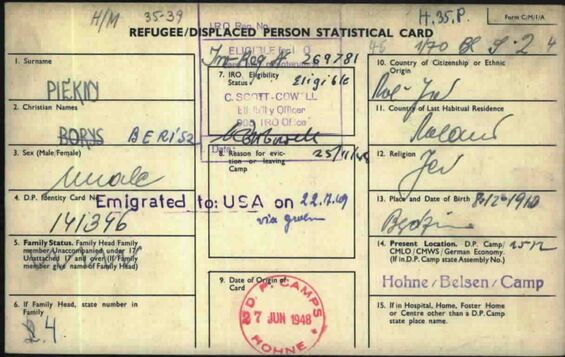 H/M 35-39
H.35.P.
Form C/M/1/A
I.R.O Reg. No.
REFUGEE/DISPLACED PERSON STATISTICAL CARD
1. Surname
PIEKIN
2. Christian Names
BORYS BERISZ
3. Sex (Male/Female)
male
4. D.P. Identity Card No.
141396
5. Family Status. Family Head Family
member/Unaccompanied under 17/
Unattached 17 and over (If Family
member give name of Family Head)
6. If Family Head, state number in
Family
4
269781
7. IRO Eligibility
Status
Eligible
C. SCOTT-COWELL
Eligibility Officer
IRO Office
Date:
8. Reason for evic-
tion or leaving
Camp
Emigrated to: USA on 22.12.49
via
9. Date of Origin of
Card
D.P. CAMPS
7 JUN 1948
HOHNE
10. Country of Citizenship or Ethnic
Origin
Pol-Jew
11. Country of Last Habitual Residence
Poland
12. Religion
Jew
13. Place and Date of Birth 8-12-1910
14. Present Location. D.P. Camp/
CMLO/CMWS/German Economy.
(If in D.P. Camp state Assembly No.)
Hohne/Belsen/Camp
15. If in Hospital, Home, Foster Home
or Centre other than a D.P. Camp
state place name.